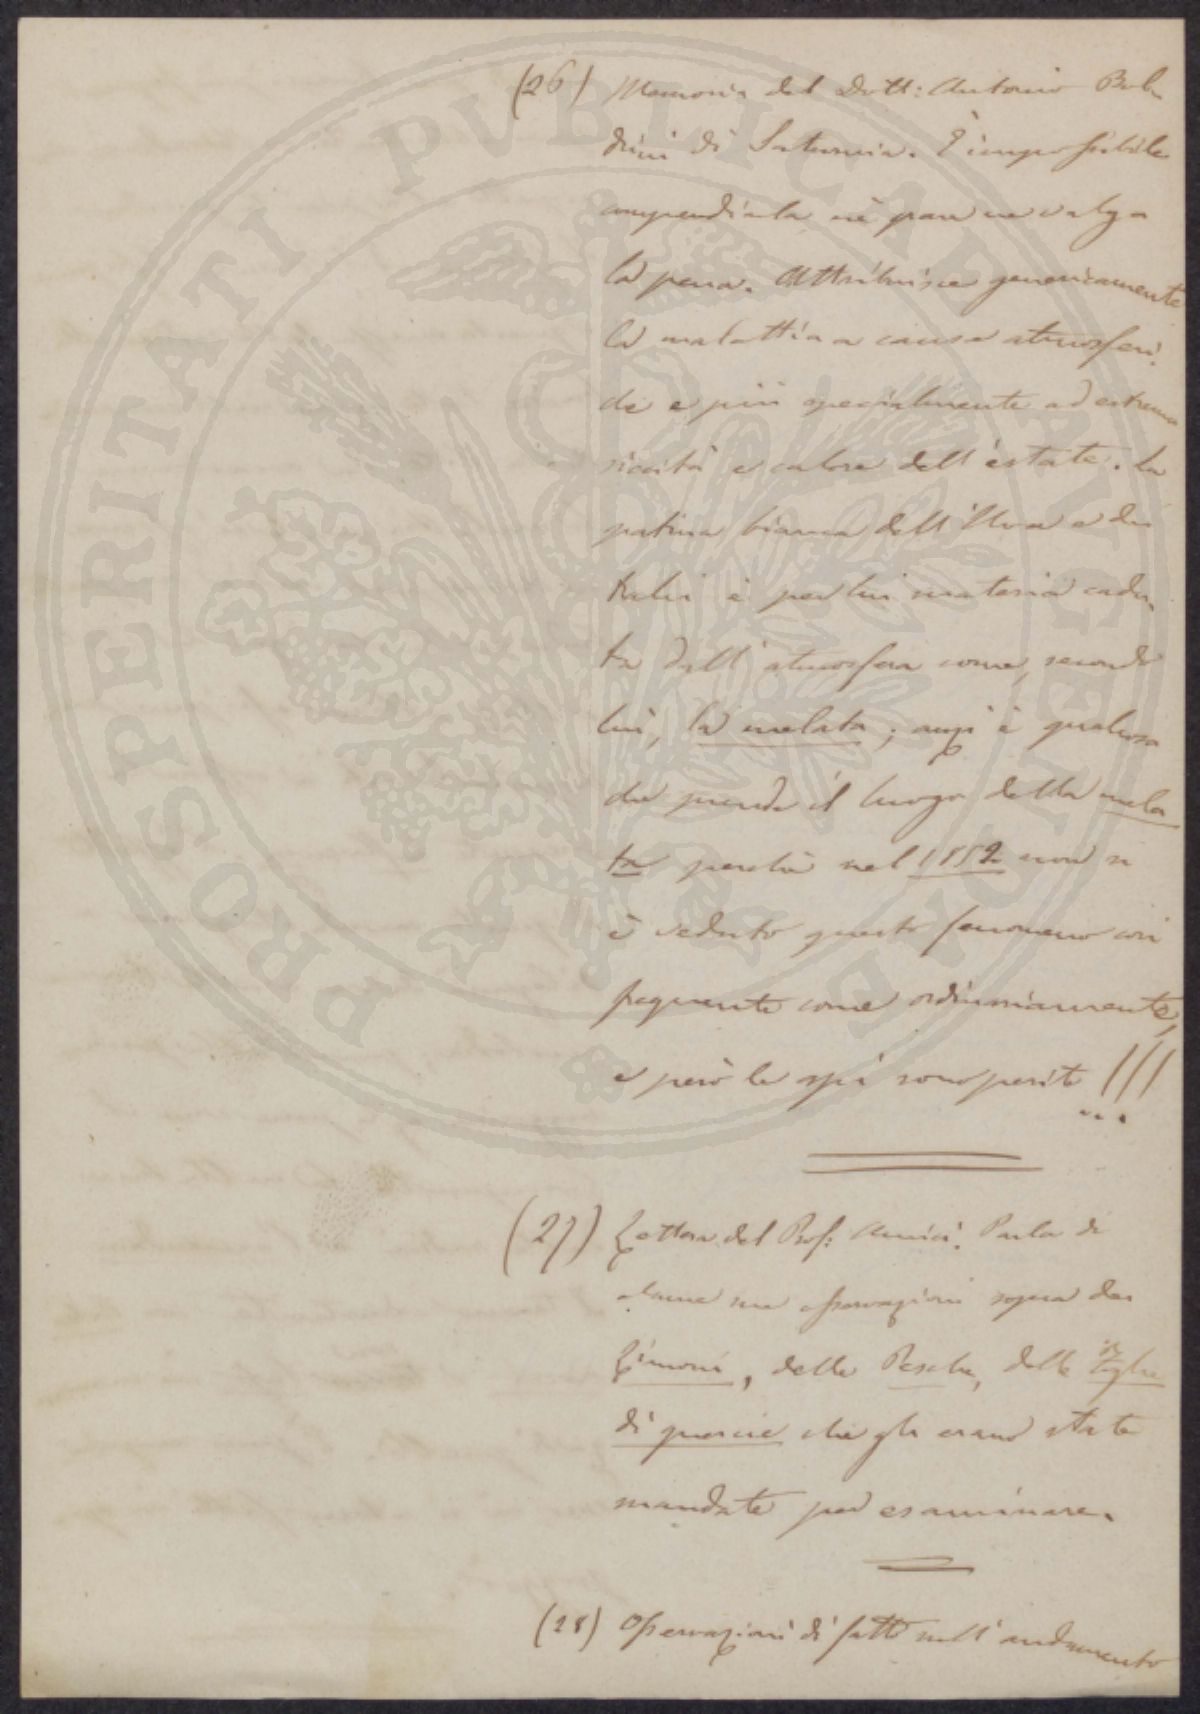 PROSPERITATI PVBLICAE AVGENDAE
(26) Memoria del Dott: Antonio Bal-
dini di Saturnia. È impossibile
compendiarla, nè pare ne valga
la pena. Attribuisce genericamente
la malattia a cause atmosferi-
che e più specialmente ad estrema
siccità e calore dell'estate. La
patina bianca dell'Uva e dei
tralci è per lui materia cadu-
ta dall'atmosfera come, secondo
lui, la melata; anzi è qualcosa
che prende il luogo della mela
ta perchè nel 1852 non si
è veduto questo fenomeno così
frequente come ordinariamente,
e però le api sono perite!!!
(27) Lettera del Prof: Amici. Parla di
alcune sue osservazioni sopra dei
Limoni, delle Pesche, delle
di quercie che gli erano state
mandate per esaminare.
(28) Osservazioni di fatto sull'andamento